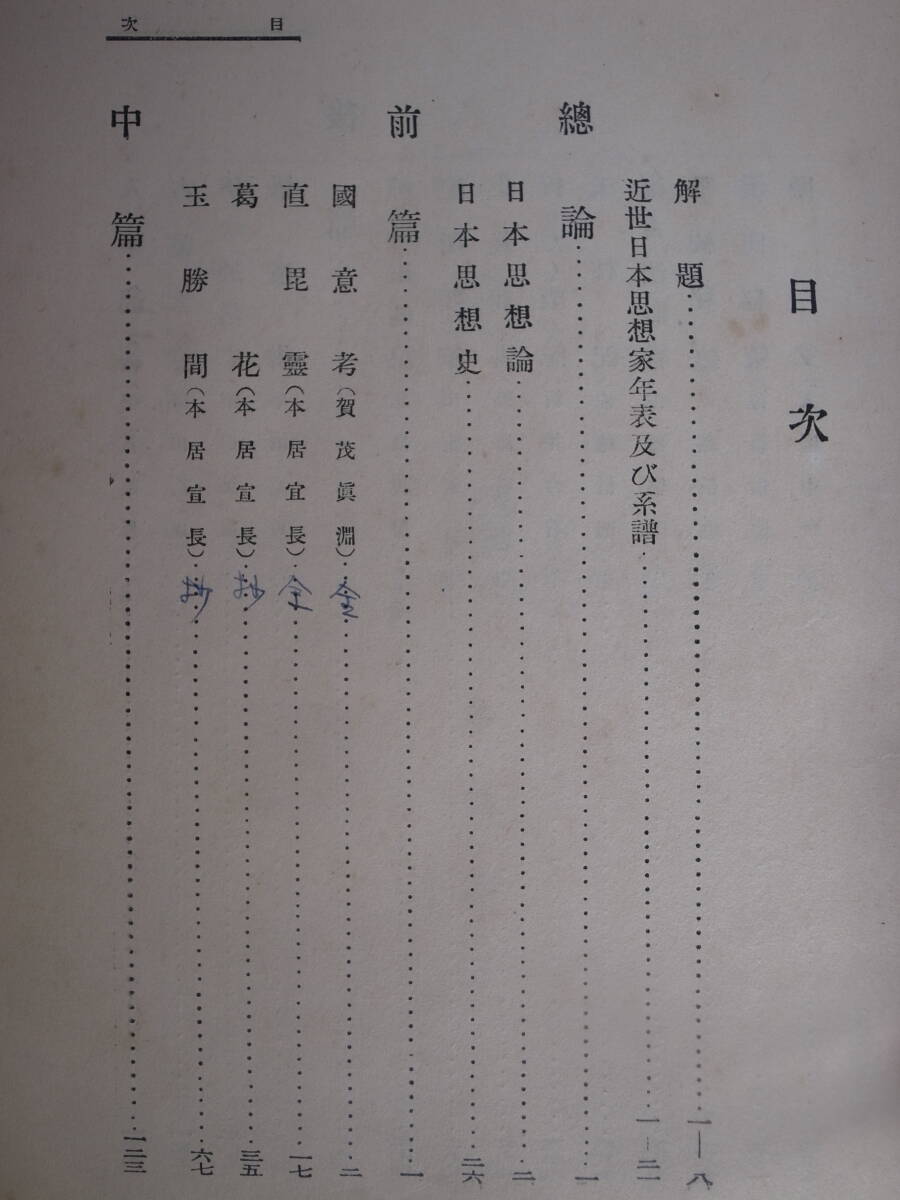 目次
目次
解題……一—八
近世日本思想家年表及び系譜……一—二一
總論……一
日本思想論……二
日本思想史……二六
前篇……一
國意考(賀茂眞淵)全……二
直毘靈(本居宣長)全……一七
葛花(本居宣長)抄……三五
玉勝間(本居宣長)抄……六七
中篇……一二三